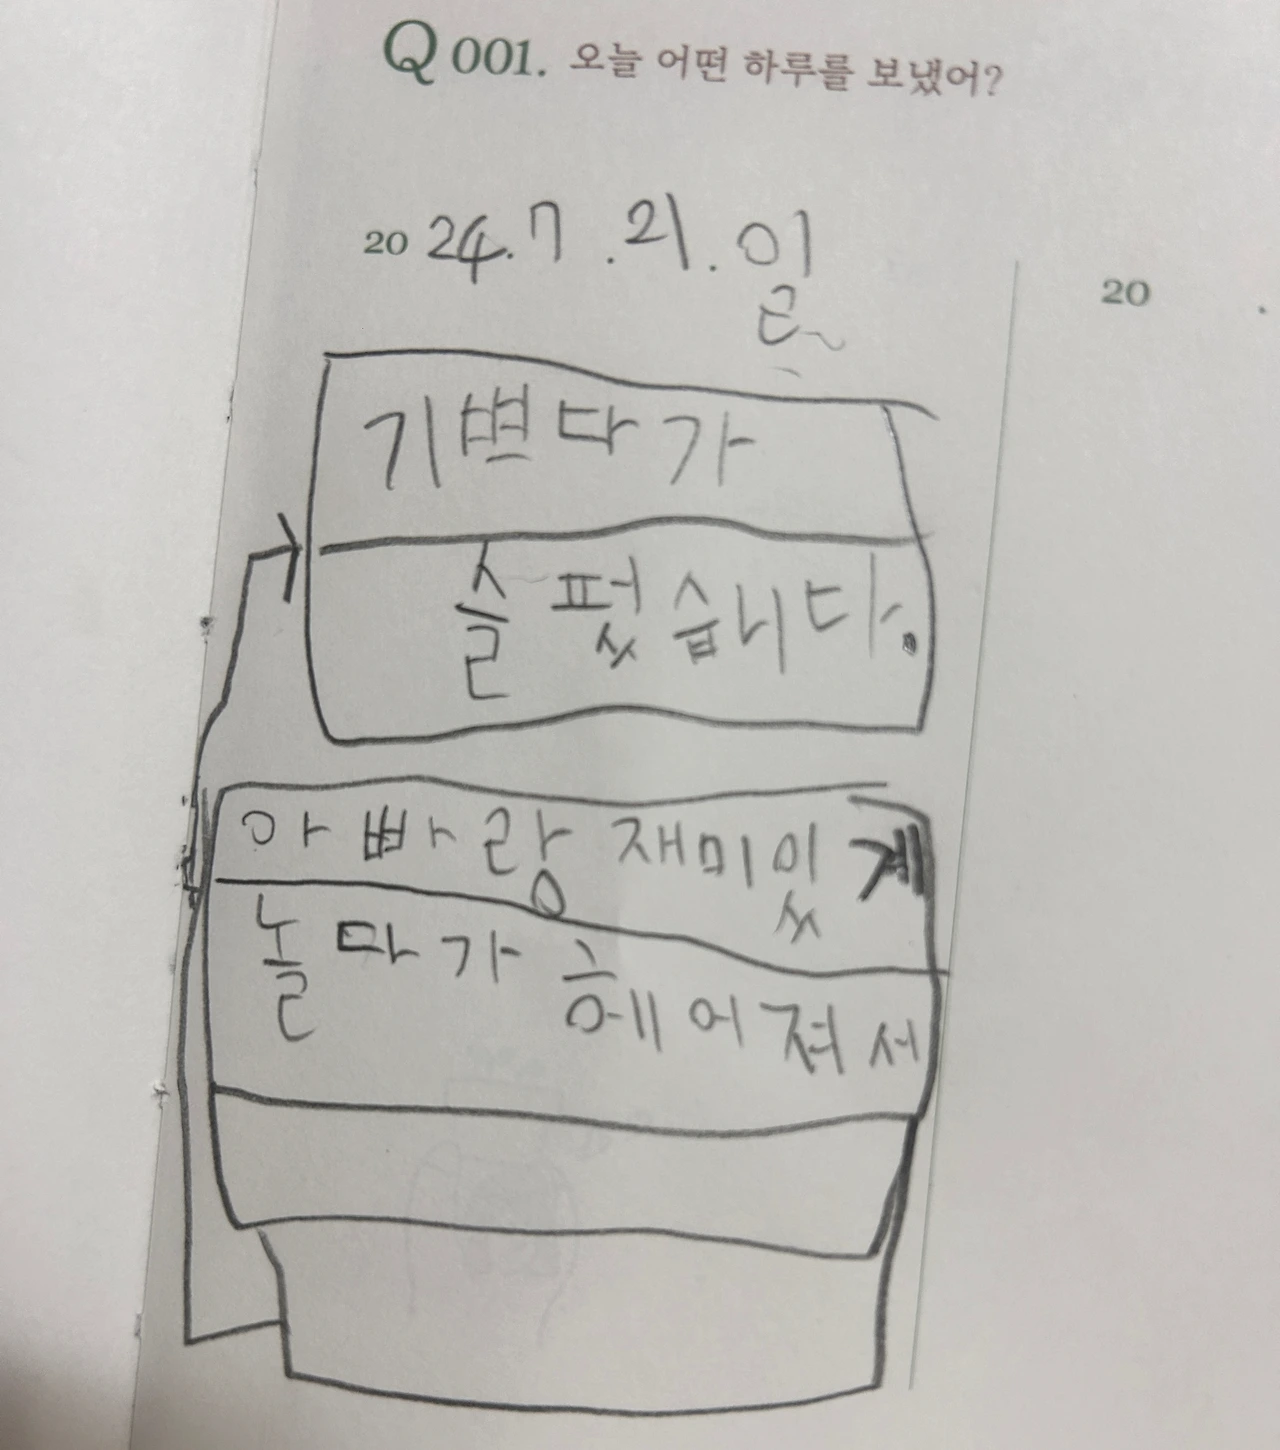 Q 001. 오늘 어떤 하루를 보냈어?
20 24.7.21.일
20
기쁘다가
슬펐습니다.
아빠랑 재미있게
놀다가 헤어져서